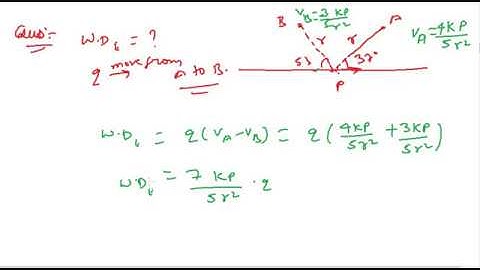 Ques:- W.D_E = ?
q move from A to B.
B V_B = 3KP/5r²
A V_A = 4KP/5r²
r r
53 37°
P
W.D_E = q(V_A - V_B) = q(4KP/5r² + 3KP/5r²)
W.D_E = 7KP/5r² · q